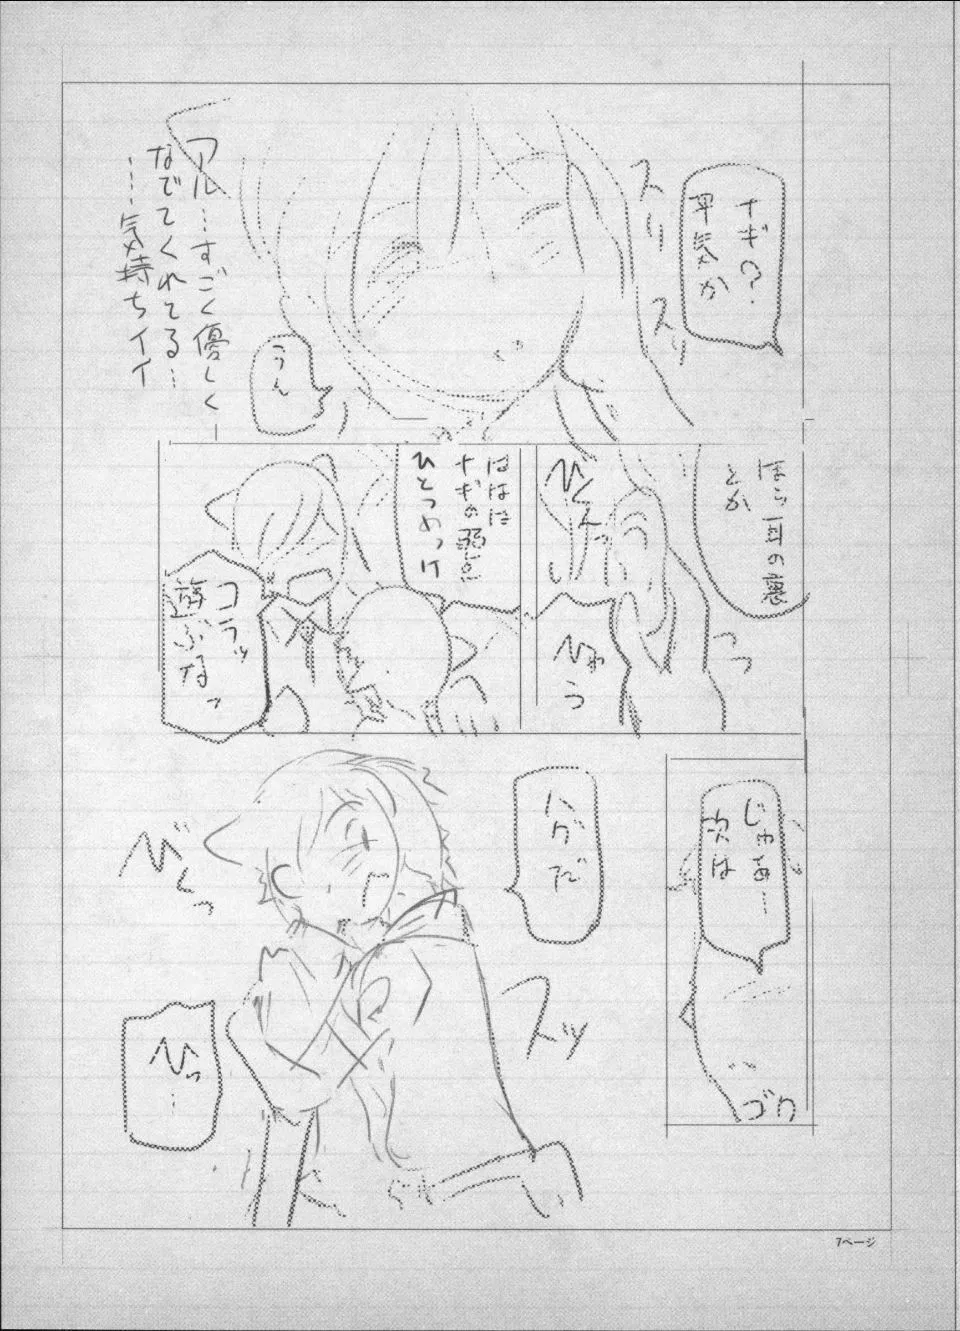 ナギ?
平気か
スリ
スリ
うん
アル…すごく優しく
なでてくれてる…
……気持ちイイ
ほら耳の穂
とか
ひくんっ
ひゃう
ははは
ナギの弱点
ひとつめっけ
コラッ
遊ぶなッ
じゃあ…
次は
ゴク
ハグだ
スッ
びくっ
ひっ…
7ページ